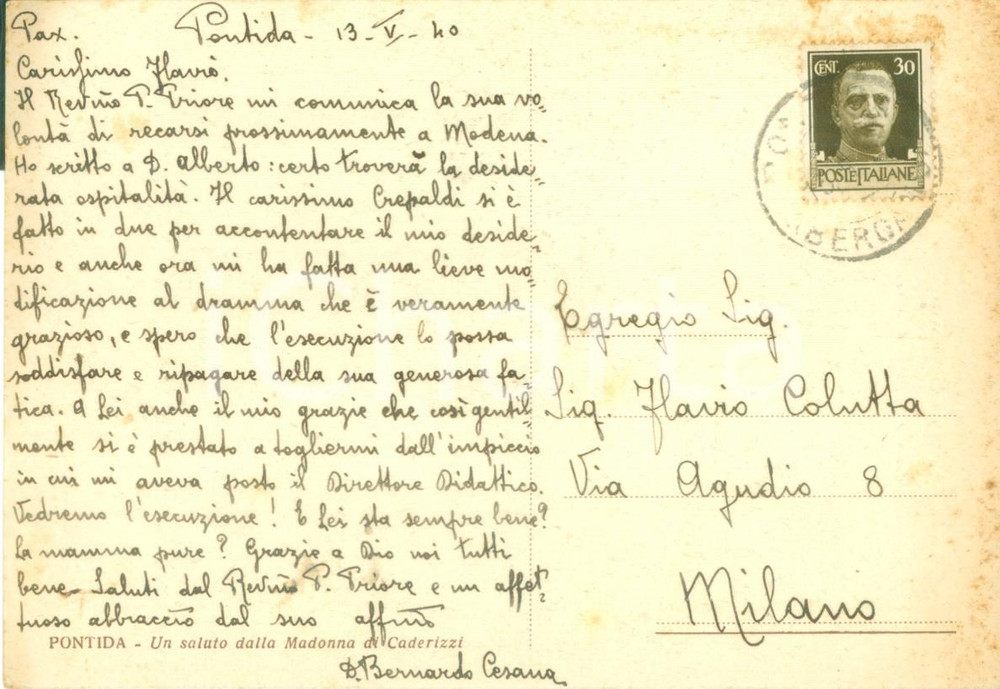 Pax. Pontida - 13 - V - 40
Carissimo Flavio.
Il Rev.mo P. Priore mi comunica la sua vo=
lontà di recarsi prossimamente a Modena.
Ho scritto a D. Alberto: certo troverà la deside=
rata ospitalità. Il carissimo Crepaldi si è
fatto in due per accontentare il mio deside=
rio e anche ora mi ha fatta una lieve mo=
dificazione al dramma che è veramente
grazioso, e spero che l'esecuzione lo possa
soddisfare e ripagare della sua generosa fa=
tica. A Lei anche il mio grazie che così gentil=
mente si è prestato a togliermi dall'impiccio
in cui mi aveva posto il Direttore Didattico.
Vedremo l'esecuzione! E Lei sta sempre bene?
La mamma pure? Grazie a Dio noi tutti
bene. Saluti dal Rev.mo P. Priore e un affet=
tuoso abbraccio dal suo aff.mo
D. Bernardo Cesana
PONTIDA - Un saluto dalla Madonna di Caderizzi
CENT. 30
POSTE ITALIANE
BERGA
Egregio Sig.
Sig. Flavio Colutta
Via Agudio 8
Milano